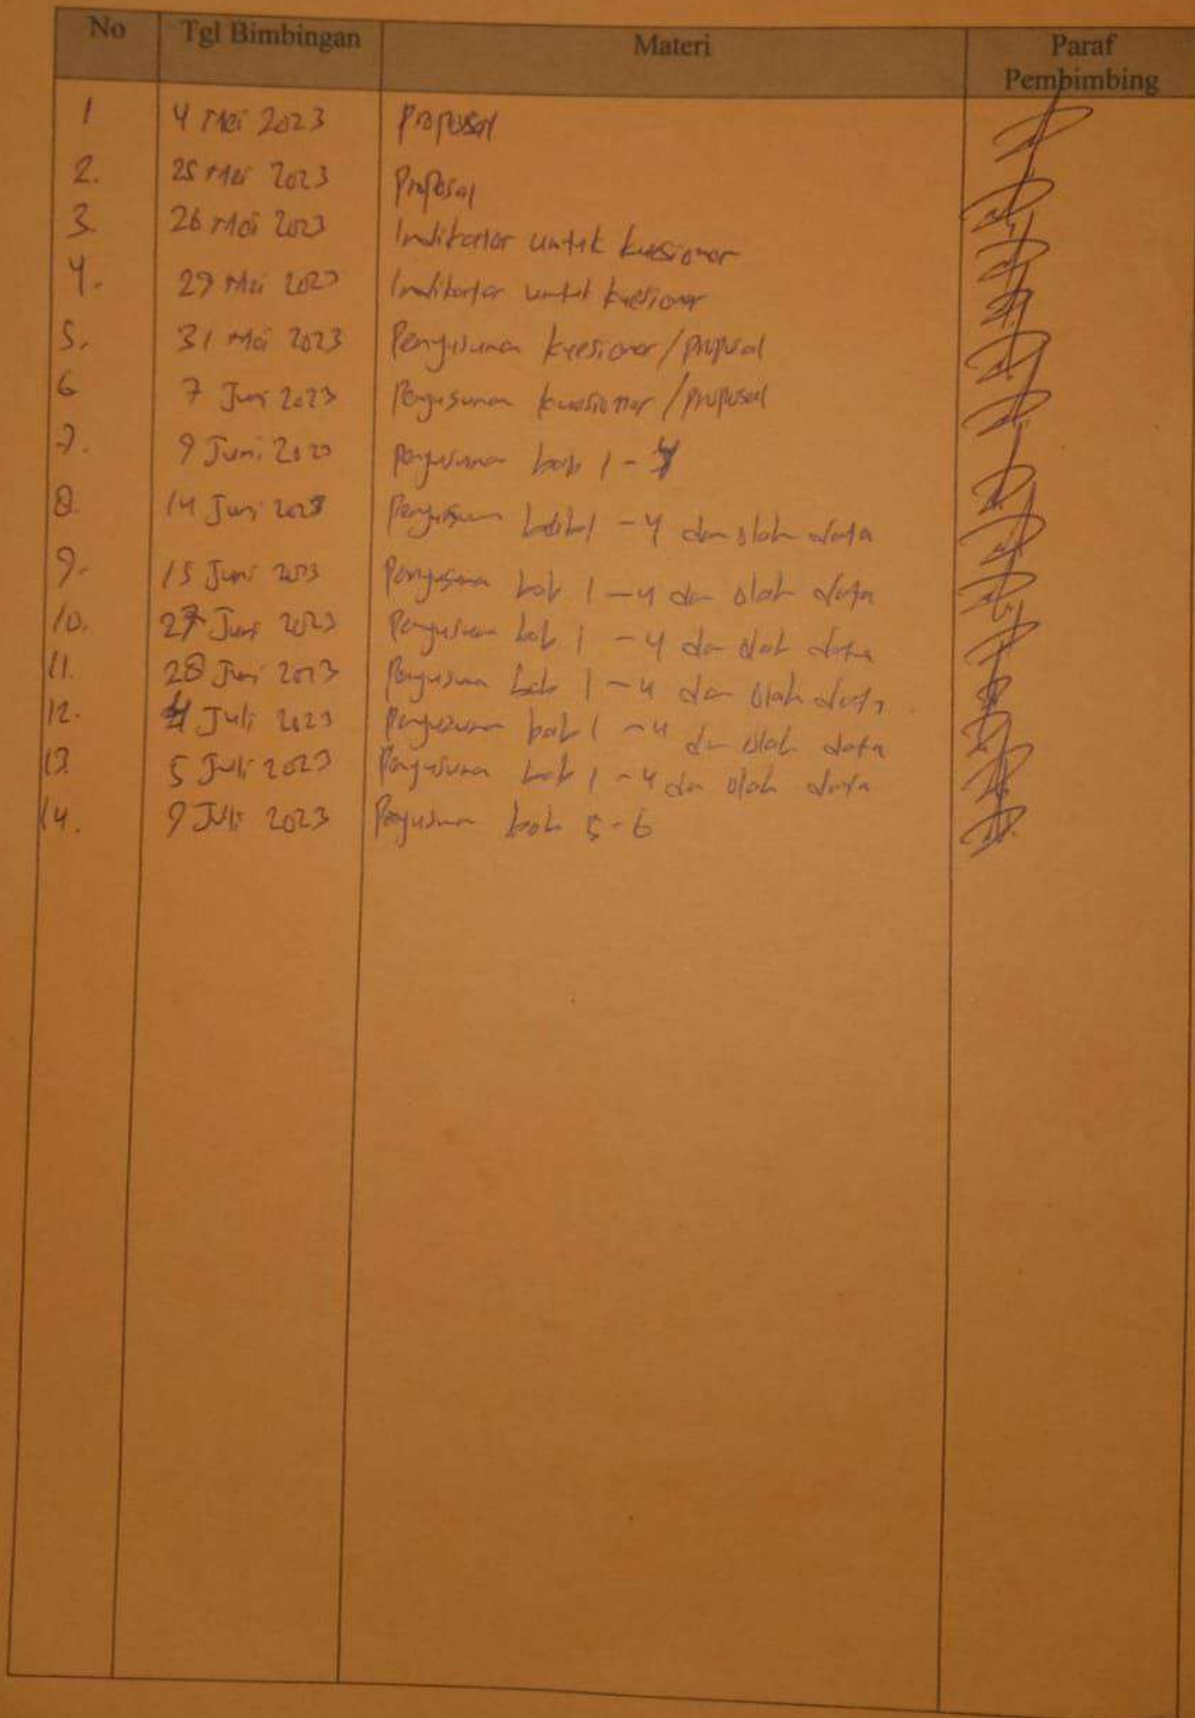 No Tgl Bimbingan Materi Paraf Pembimbing
1 4 Mei 2023 Proposal
2. 25 Mei 2023 Proposal
3. 26 Mei 2023 Indikator untuk kuesioner
4. 29 Mei 2023 Indikator untuk kuesioner
5. 31 Mei 2023 Penyusunan kuesioner/proposal
6 7 Juni 2023 Penyusunan kuesioner/proposal
7. 9 Juni 2023 Penyusunan bab 1-4
8. 14 Juni 2023 Penyusunan bab 1-4 dan olah data
9. 15 Juni 2023 Penyusunan bab 1-4 dan olah data
10. 27 Juni 2023 Penyusunan bab 1-4 dan olah data
11. 28 Juni 2023 Penyusunan bab 1-4 dan olah data
12. 4 Juli 2023 Penyusunan bab 1-4 dan olah data
13. 5 Juli 2023 Penyusunan bab 1-4 dan olah data
14. 9 Juli 2023 Penyusunan bab 5-6